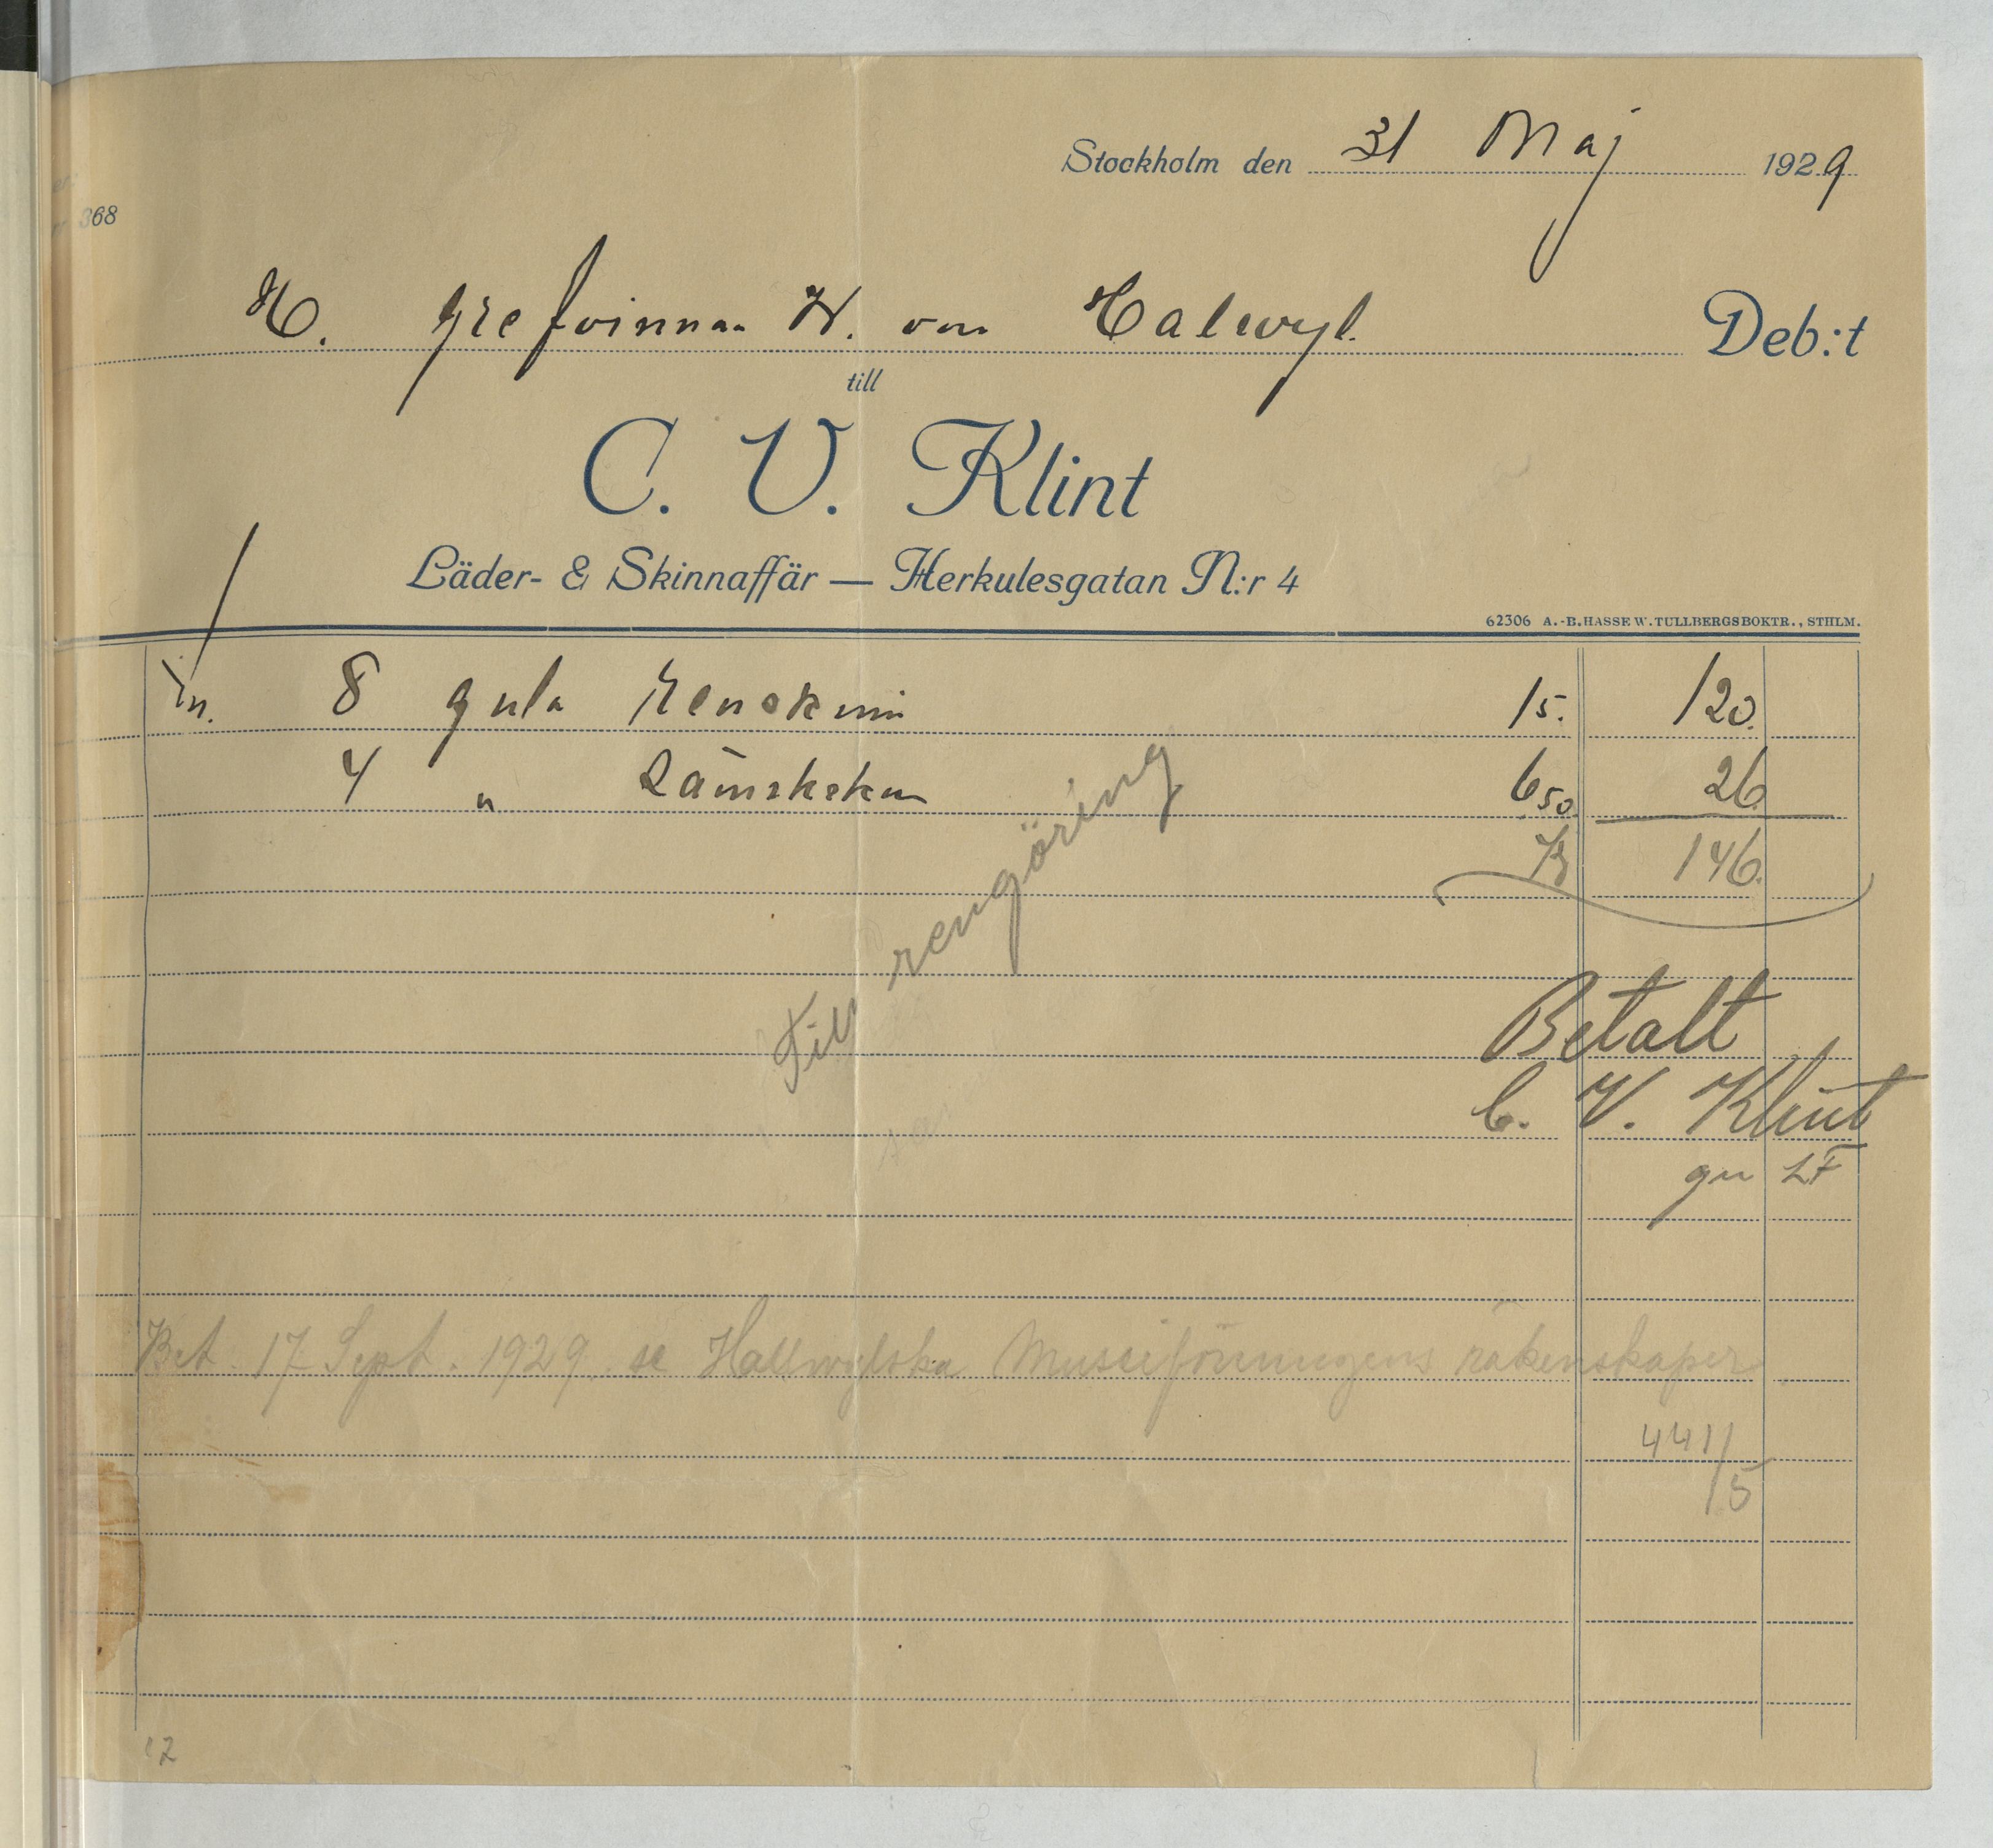 Stockholm den 31 Maj 1929
368
H. Grefvinnan W. von Halwyl. Deb:t
till
C. V. Klint
Läder- & Skinnaffär — Herkulesgatan N:r 4
62306 A.-B. HASSE W. TULLBERGS BOKTR., STHLM.
8 gula Renskinn 15. 120.
4 " Sämskskinn 6,50. 26.
Kr 146.
Till rengöring
Betalt
C. V. Klint
gm LF
Bet. 17 Sept. 1929. se Hallwylska Museiföreningens räkenskaper.
441/5
12